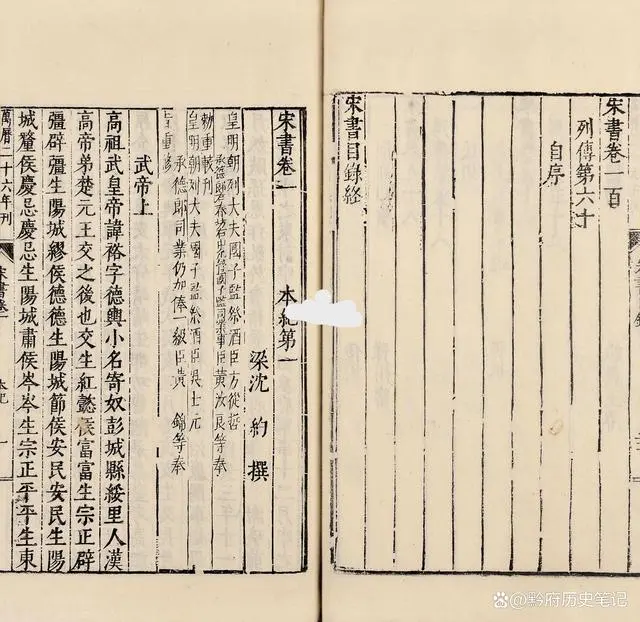 宋書卷一百
列傳第六十
自序
宋書目錄終
宋書卷一 本紀第一
梁沈約撰
皇明朝列大夫國子監祭酒臣方從哲
司業事臣黃汝良等奉
勅重較刊
皇明朝列大夫國子監祭酒臣吳士元
承德郎司業仍加俸一級臣黃 錦等奉
旨重修
武帝上
高祖武皇帝諱裕字德輿小名寄奴彭城縣綏里人漢
高帝弟楚元王交之後也交生紅懿侯富富生宗正辟
彊辟彊生陽城繆侯德德生陽城節侯安民安民生陽
城釐侯慶忌慶忌生陽城肅侯岑岑生宗正平平生東
萬曆二十六年刊
宋書卷一
本紀
一
@黔府历史笔记